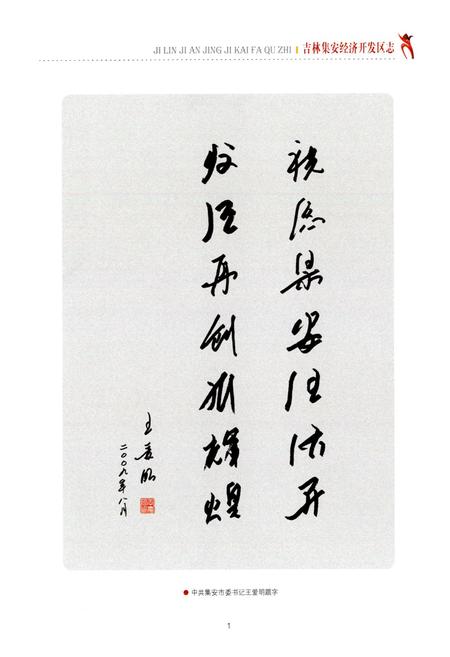 JI LIN JI AN JING JI KAI FA QU ZHI
吉林集安经济开发区志
祝愿集安经济开
发区再创新辉煌
王爱明
二〇〇九年八月
中共集安市委书记王爱明题字
1